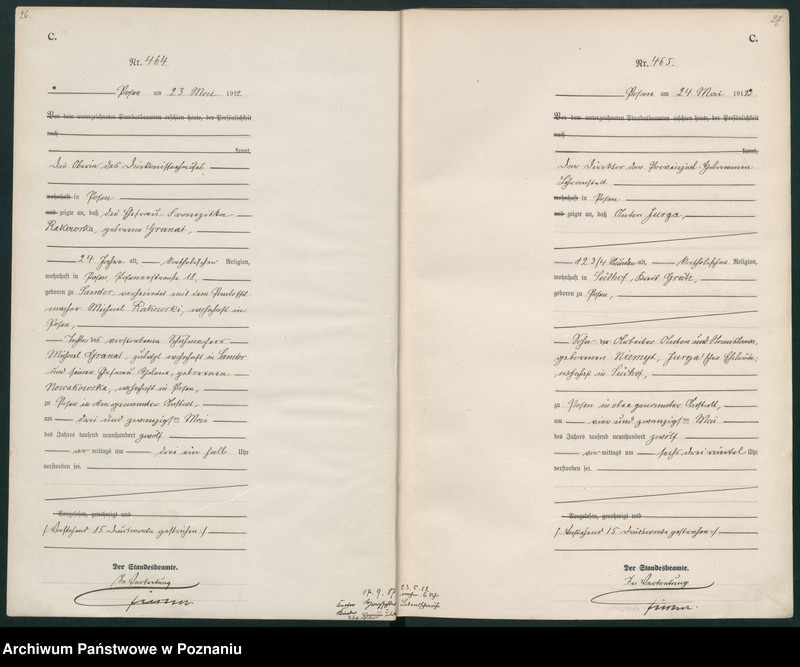 26.
C.
Nr. 464.
Posen am 23 Mai 1912.
Vor dem unterzeichneten Standesbeamten erschien heute, der Persönlichkeit
nach
kannt,
die Oberin des Diakonissenhauses
wohnhaft in Posen
und zeigte an, daß die Ehefrau Franziska
Rakowska, geborene Granat,
24 Jahre alt, katholischer Religion,
wohnhaft in Posen, Posenerstraße 18,
geboren zu Samter, verheiratet mit dem
macher Michael Rakowski, wohnhaft in
Posen,
Tochter des verstorbenen Schuhmachers
Michael Granat, zuletzt wohnhaft in Samter
und seiner Ehefrau Helene, geborenen
Nowakowska, wohnhaft in Posen,
zu Posen in der genannten Anstalt,
am drei und zwanzigsten Mai
des Jahres tausend neunhundert zwölf
vor mittags um drei ein halb Uhr
verstorben sei.
Vorgelesen, genehmigt und
/: Vorstehend 15 Druckworte gestrichen :/
Der Standesbeamte.
In Vertretung
27.
C.
Nr. 465.
Posen am 24 Mai 1912
Vor dem unterzeichneten Standesbeamten erschien heute, der Persönlichkeit
nach
kannt,
der Direktor der Provinzial-Hebammen
Lehranstalt
wohnhaft in Posen
und zeigte an, daß Anton Jurga,
12 3/4 Stunden alt, katholischer Religion,
wohnhaft in Südhof, Kreis Grätz,
geboren zu Posen,
Sohn der Arbeiter Anton und Stanislawa,
geborenen Niemyt, Jurga'schen Eheleute,
wohnhaft in Südhof,
zu Posen in oben genannter Anstalt,
am vier und zwanzigsten Mai
des Jahres tausend neunhundert zwölf
vor mittags um sechs drei viertel Uhr
verstorben sei.
Vorgelesen, genehmigt und
/: Vorstehend 15 Druckworte gestrichen :/
Der Standesbeamte.
In Vertretung
17. 9. 87
23. 5. 12
Archiwum Państwowe w Poznaniu